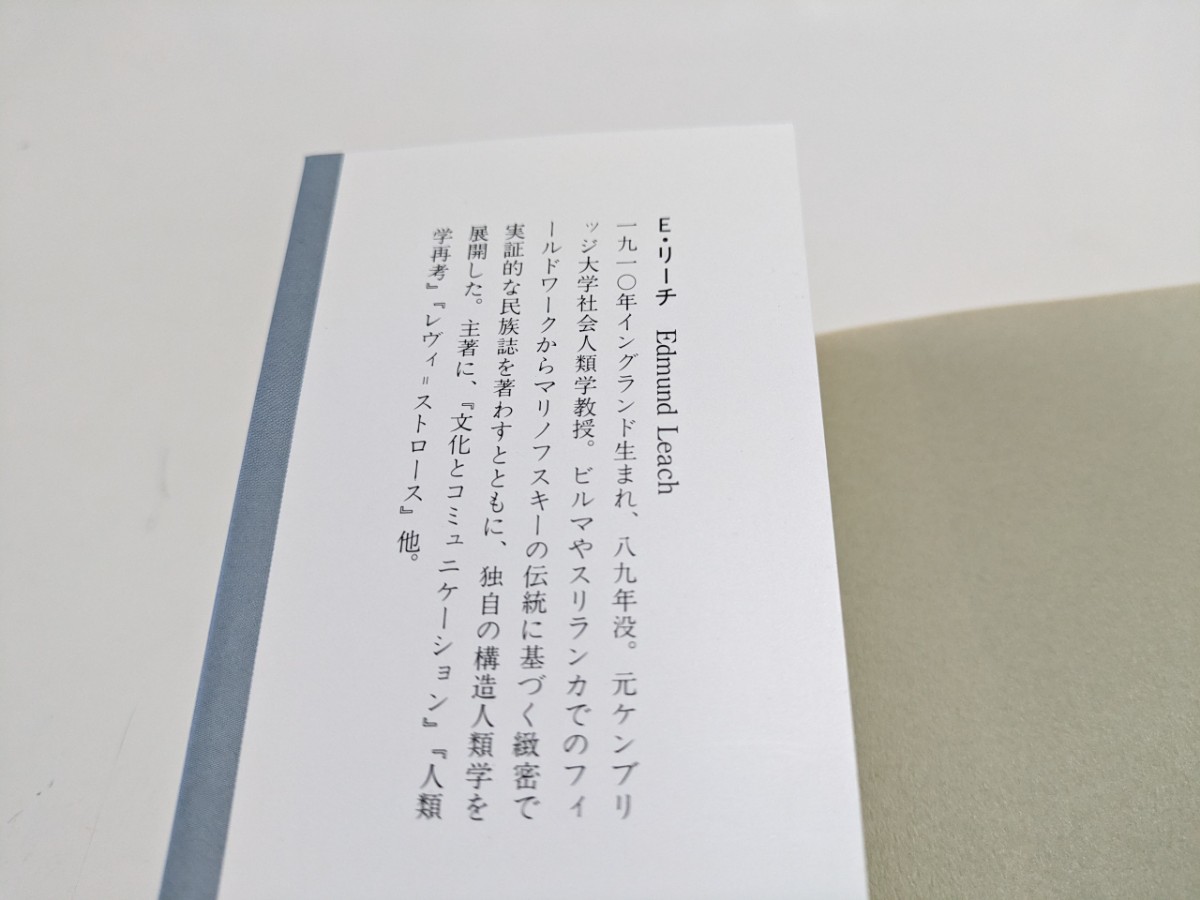 E・リーチ Edmund Leach
一九一〇年イングランド生まれ、八九年没。元ケンブリ
ッジ大学社会人類学教授。ビルマやスリランカでのフィ
ールドワークからマリノフスキーの伝統に基づく緻密で
実証的な民族誌を著わすとともに、独自の構造人類学を
展開した。主著に、『文化とコミュニケーション』『人類
学再考』『レヴィ＝ストロース』他。